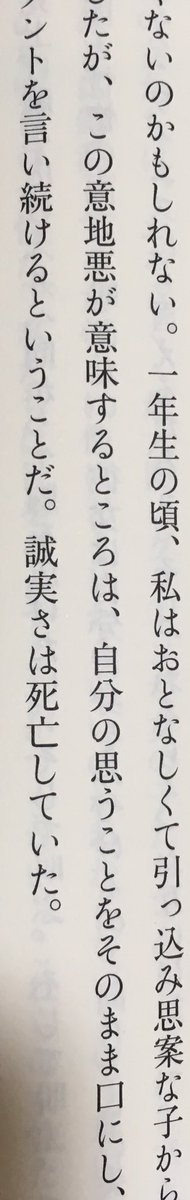 くないのかもしれない。一年生の頃、私はおとなしくて引っ込み思案な子から
したが、この意地悪が意味するところは、自分の思うことをそのまま口にし、
メントを言い続けるということだ。誠実さは死亡していた。